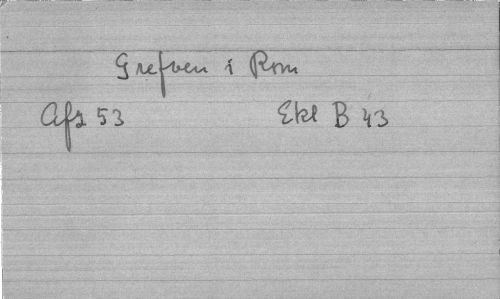 Grefven i Rom
Afz 53 Ekl B 43